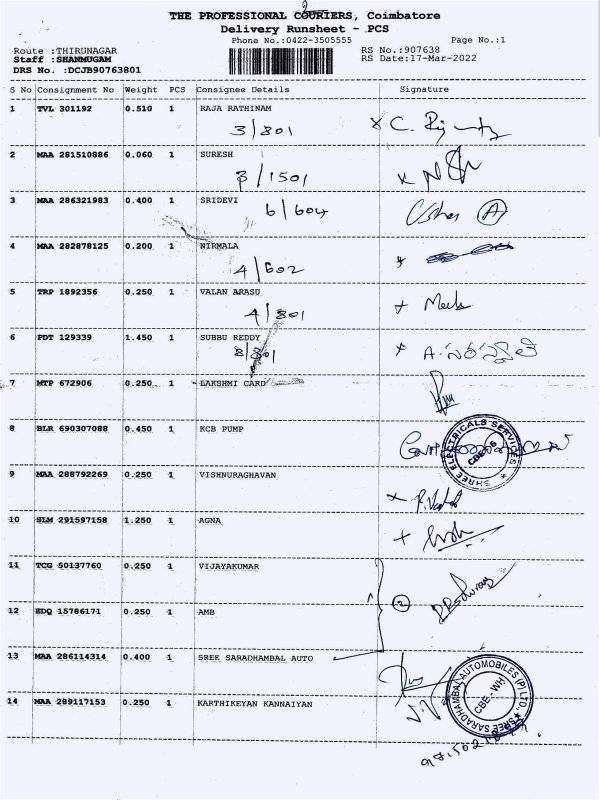 2
THE PROFESSIONAL COURIERS, Coimbatore
Delivery Runsheet - PCS
Phone No.:0422-3505555 Page No.:1
Route :THIRUNAGAR RS No.:907638
Staff :SHANMUGAM RS Date:17-Mar-2022
DRS No. :DCJB90763801
S No Consignment No Weight PCS Consignee Details Signature
1 TVL 301192 0.510 1 RAJA RATHINAM
3/801 x C.
2 MAA 281510886 0.060 1 SURESH
3/1501 x
3 MAA 286321983 0.400 1 SRIDEVI
6/604 Usha A
4 MAA 282878125 0.200 1 NIRMALA
4/602
5 TRP 1892356 0.250 1 VALAN ARASU
4/801
6 PDT 129339 1.450 1 SUBBU REDDY
8/801
7 MTP 672906 0.250 1 LAKSHMI CARD
8 BLR 690307088 0.450 1 KCB PUMP
SHREE ELECTRICALS SERVICES
9 MAA 288792269 0.250 1 VISHNURAGHAVAN
10 SLM 291597158 1.250 1 AGNA
11 TCG 50137760 0.250 1 VIJAYAKUMAR
2
12 EDQ 15786171 0.250 1 AMB
13 MAA 286114314 0.400 1 SREE SARADHAMBAL AUTO
SREE SARADHAMBAL AUTOMOBILES (P) LTD.,
CBE - WH
14 MAA 289117153 0.250 1 KARTHIKEYAN KANNAIYAN